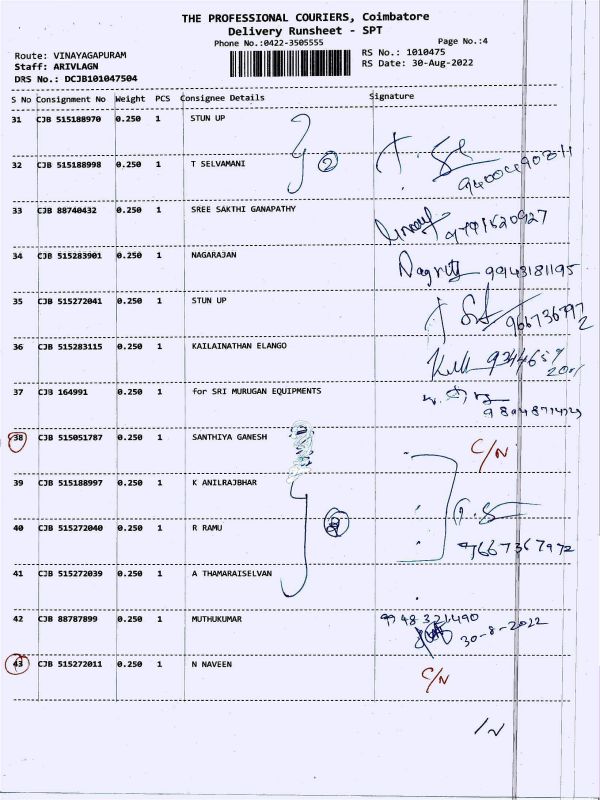 THE PROFESSIONAL COURIERS, Coimbatore
Delivery Runsheet - SPT
Phone No.:0422-3505555 Page No.:4
Route: VINAYAGAPURAM RS No.: 1010475
Staff: ARIVLAGN RS Date: 30-Aug-2022
DRS No.: DCJB101047504
S No Consignment No Weight PCS Consignee Details Signature
31 CJB 515188970 0.250 1 STUN UP
32 CJB 515188998 0.250 1 T SELVAMANI 2
33 CJB 88740432 0.250 1 SREE SAKTHI GANAPATHY
34 CJB 515283901 0.250 1 NAGARAJAN 9943181195
35 CJB 515272041 0.250 1 STUN UP
36 CJB 515283115 0.250 1 KAILAINATHAN ELANGO
37 CJB 164991 0.250 1 for SRI MURUGAN EQUIPMENTS
38 CJB 515051787 0.250 1 SANTHIYA GANESH C/N
39 CJB 515188997 0.250 1 K ANILRAJBHAR
40 CJB 515272040 0.250 1 R RAMU 9667367972
41 CJB 515272039 0.250 1 A THAMARAISELVAN
42 CJB 88787899 0.250 1 MUTHUKUMAR 30-8-2022
43 CJB 515272011 0.250 1 N NAVEEN C/N